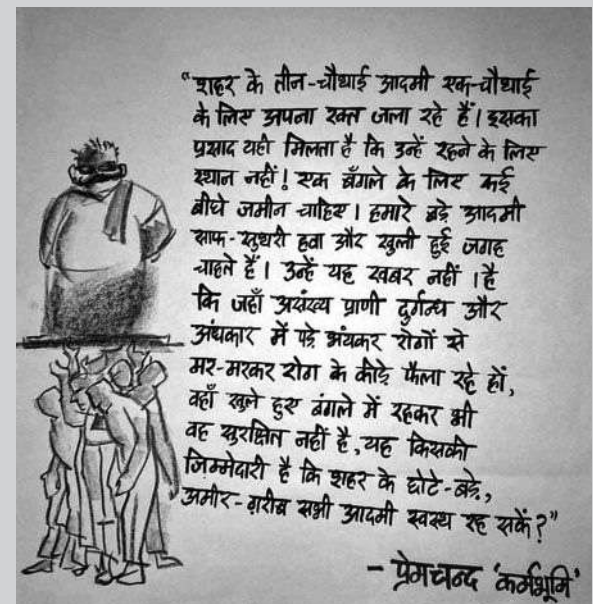 “शहर के तीन-चौथाई आदमी एक-चौथाई
के लिए अपना रक्त जला रहे हैं। इसका
प्रसाद यही मिलता है कि उन्हें रहने के लिए
स्थान नहीं! एक बँगले के लिए कई
बीघे जमीन चाहिए। हमारे बड़े आदमी
साफ-सुथरी हवा और खुली हुई जगह
चाहते हैं। उन्हें यह खबर नहीं । है
कि जहाँ असंख्य प्राणी दुर्गन्ध और
अंधकार में पड़े भयंकर रोगों से
मर-मरकर रोग के कीड़े फैला रहे हों,
वहाँ खुले हुए बंगले में रहकर भी
वह सुरक्षित नहीं है, यह किसकी
जिम्मेदारी है कि शहर के छोटे-बड़े,
अमीर-ग़रीब सभी आदमी स्वस्थ रह सकें?”
- प्रेमचन्द 'कर्मभूमि'